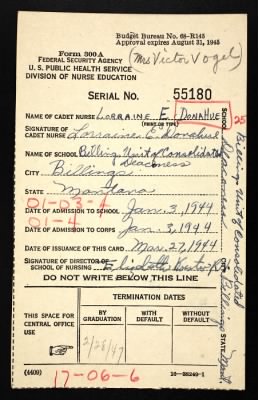 Budget Bureau No. 68-R145
Approval expires August 31, 1945
(Mrs Victor Vogel)
Form 300A
FEDERAL SECURITY AGENCY
U. S. PUBLIC HEALTH SERVICE
DIVISION OF NURSE EDUCATION
SERIAL NO. 55180
NAME OF CADET NURSE LORRAINE E. DONAHUE
(PRINT OR TYPE)
SIGNATURE OF CADET NURSE Lorraine E. Donahue
NAME OF SCHOOL Billing, Unit of Consolidated
Deaconess
CITY Billings
STATE Montana
01-03-4
DATE OF ADMISSION TO SCHOOL Jan. 3, 1944
01-4
DATE OF ADMISSION TO CORPS Jan. 3, 1944
DATE OF ISSUANCE OF THIS CARD Mar. 27, 1944
SIGNATURE OF DIRECTOR OF SCHOOL OF NURSING Elizabeth
DO NOT WRITE BELOW THIS LINE
THIS SPACE FOR CENTRAL OFFICE USE
TERMINATION DATES
BY GRADUATION
WITH DEFAULT
WITHOUT DEFAULT
2/28/47
(4409)
17-06-6
16-38249-1
SCHOOL
Billing, Unit of Consolidated
Deaconess
CITY Billings
STATE Mont.
25